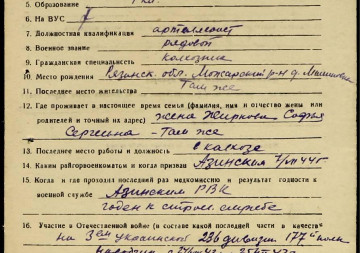 5. Образование
6. На ВУС
7. Должностная квалификация артиллерист
8. Военное звание рядовой
9. Гражданская специальность колхозник
10. Место рождения Рязанск. обл. Можарский р-н д.
11. Последнее место жительства Там же
12. Где проживает в настоящее время семья (фамилия, имя и отчество жены или
родителей и точный на адрес) жена Жиркова Софья
Сергеевна - Там же
13. Последнее место работы и должность в колхозе
14. Каким райгорвоенкоматом и когда призван Азинским
15. Когда и где проходил последний раз медкомиссию и результат годности к
военной службе Азинским РВК
годен к строев. службе
16. Участие в Отечественной войне (в составе какой последней части, в качестве
на 3ем украинской 236 дивизии 177 полк